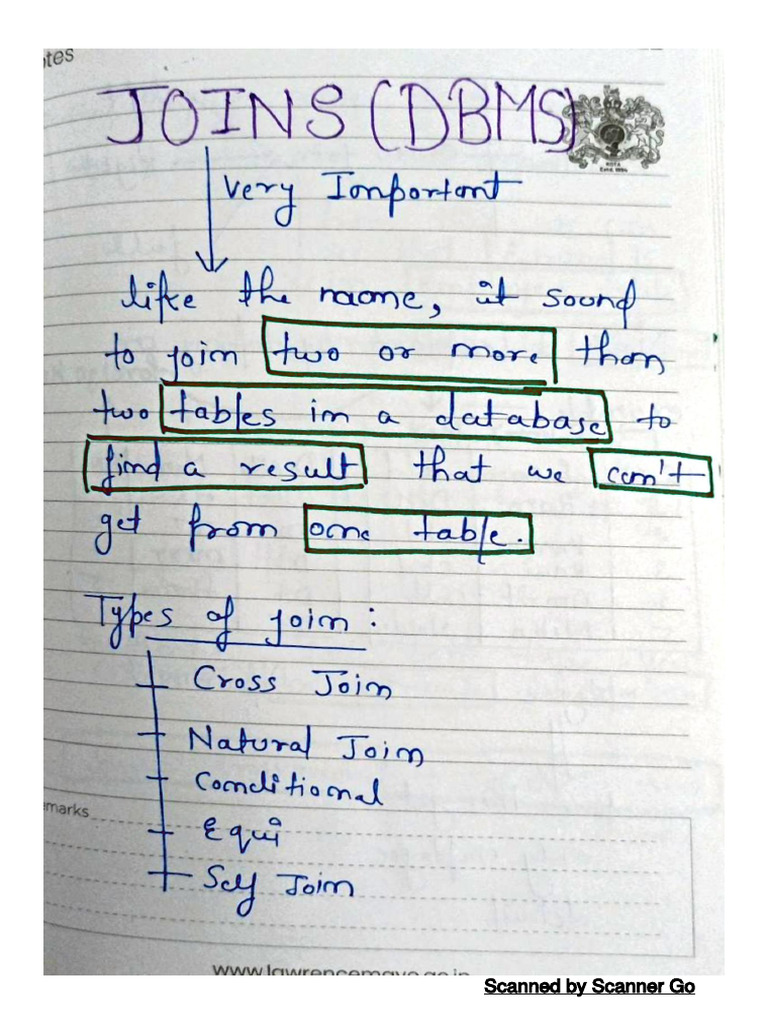 otes
JOINS (DBMS)
Very Important
like the name, it sound
to join two or more than
two tables in a database to
find a result that we can't
get from one table.
Types of join:
Cross Join
Natural Join
Conditional
Equi
Self Join
emarks
www.lawrencemayo.co.in
Scanned by Scanner Go